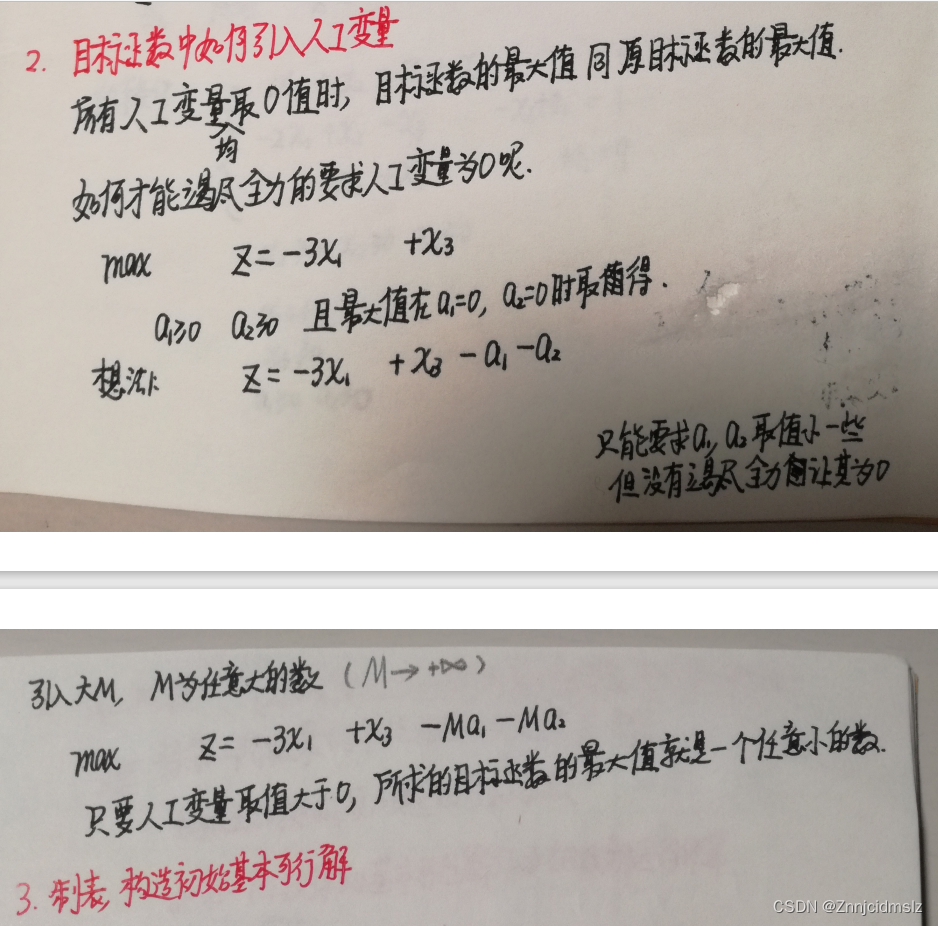 2. 目标函数中如何引入人工变量
所有人工变量取0值时, 目标函数的最大值同原目标函数的最大值.
均
如何才能竭尽全力的要求人工变量为0呢.
max z=-3x₁ +x₃
a₁≥0 a₂≥0 且最大值在a₁=0, a₂=0时取得.
想法1: z=-3x₁ +x₃ -a₁ -a₂
只能要求a₁, a₂取值小一些
但没有竭尽全力让其为0
引入大M, M为任意大的数 (M→+∞)
max z= -3x₁ +x₃ -Ma₁ -Ma₂
只要人工变量取值大于0, 所求的目标函数的最大值就是一个任意小的数.
3. 制表, 构造初始基本可行解
CSDN @Znnjcidmslz